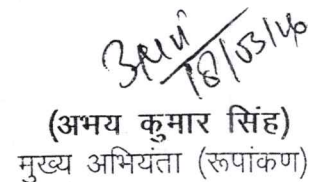 अभय
18/03/20
(अभय कुमार सिंह)
मुख्य अभियंता (रूपांकण)